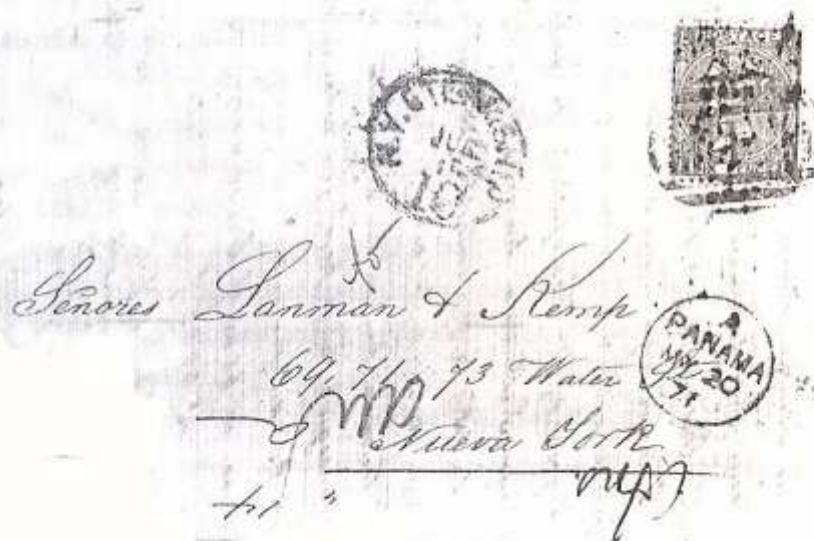 POSTAGE
N.Y. STEAMSHIP
10
Señores Lanman & Kemp
A
PANAMA
MY 20
71
69, 71, 73 Water St.
Nueva York